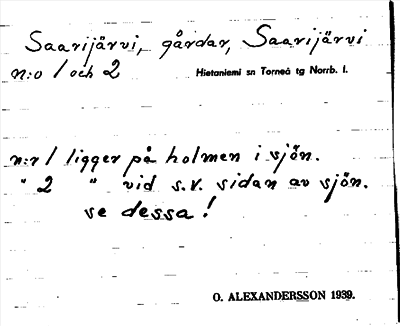 Saarijärvi, gårdar, Saarijärvi
n:o 1 och 2 Hietaniemi sn Torneå tg Norrb. l.
n:r 1 ligger på holmen i sjön.
" 2 " vid s.v. sidan av sjön.
se dessa!
O. ALEXANDERSSON 1939.